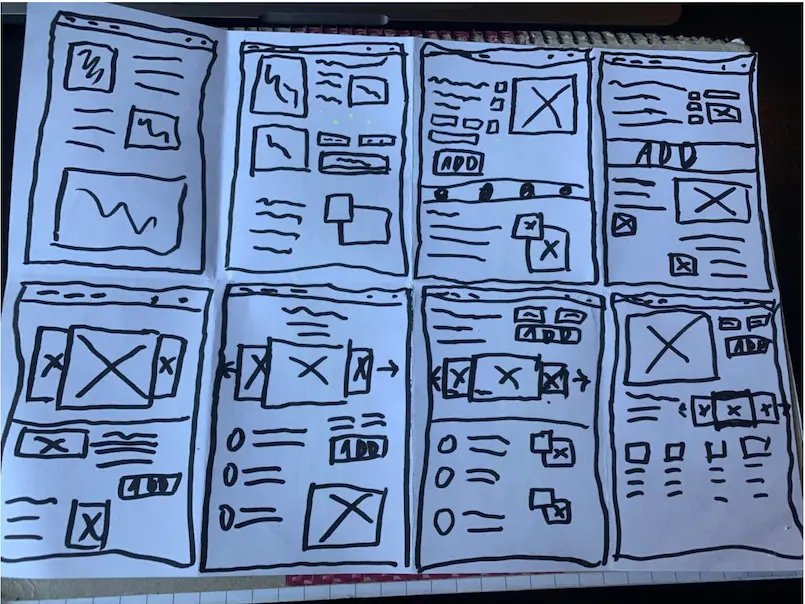 ADD
ADD
ADD
ADD
ADD
ADD